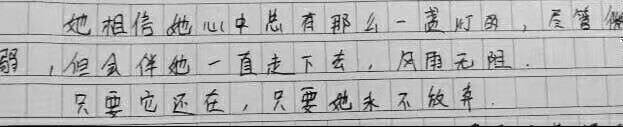 她相信她心中总有那么一盏灯的，尽管微
弱，但会伴她一直走下去，风雨无阻.
只要它还在，只要她永不放弃.